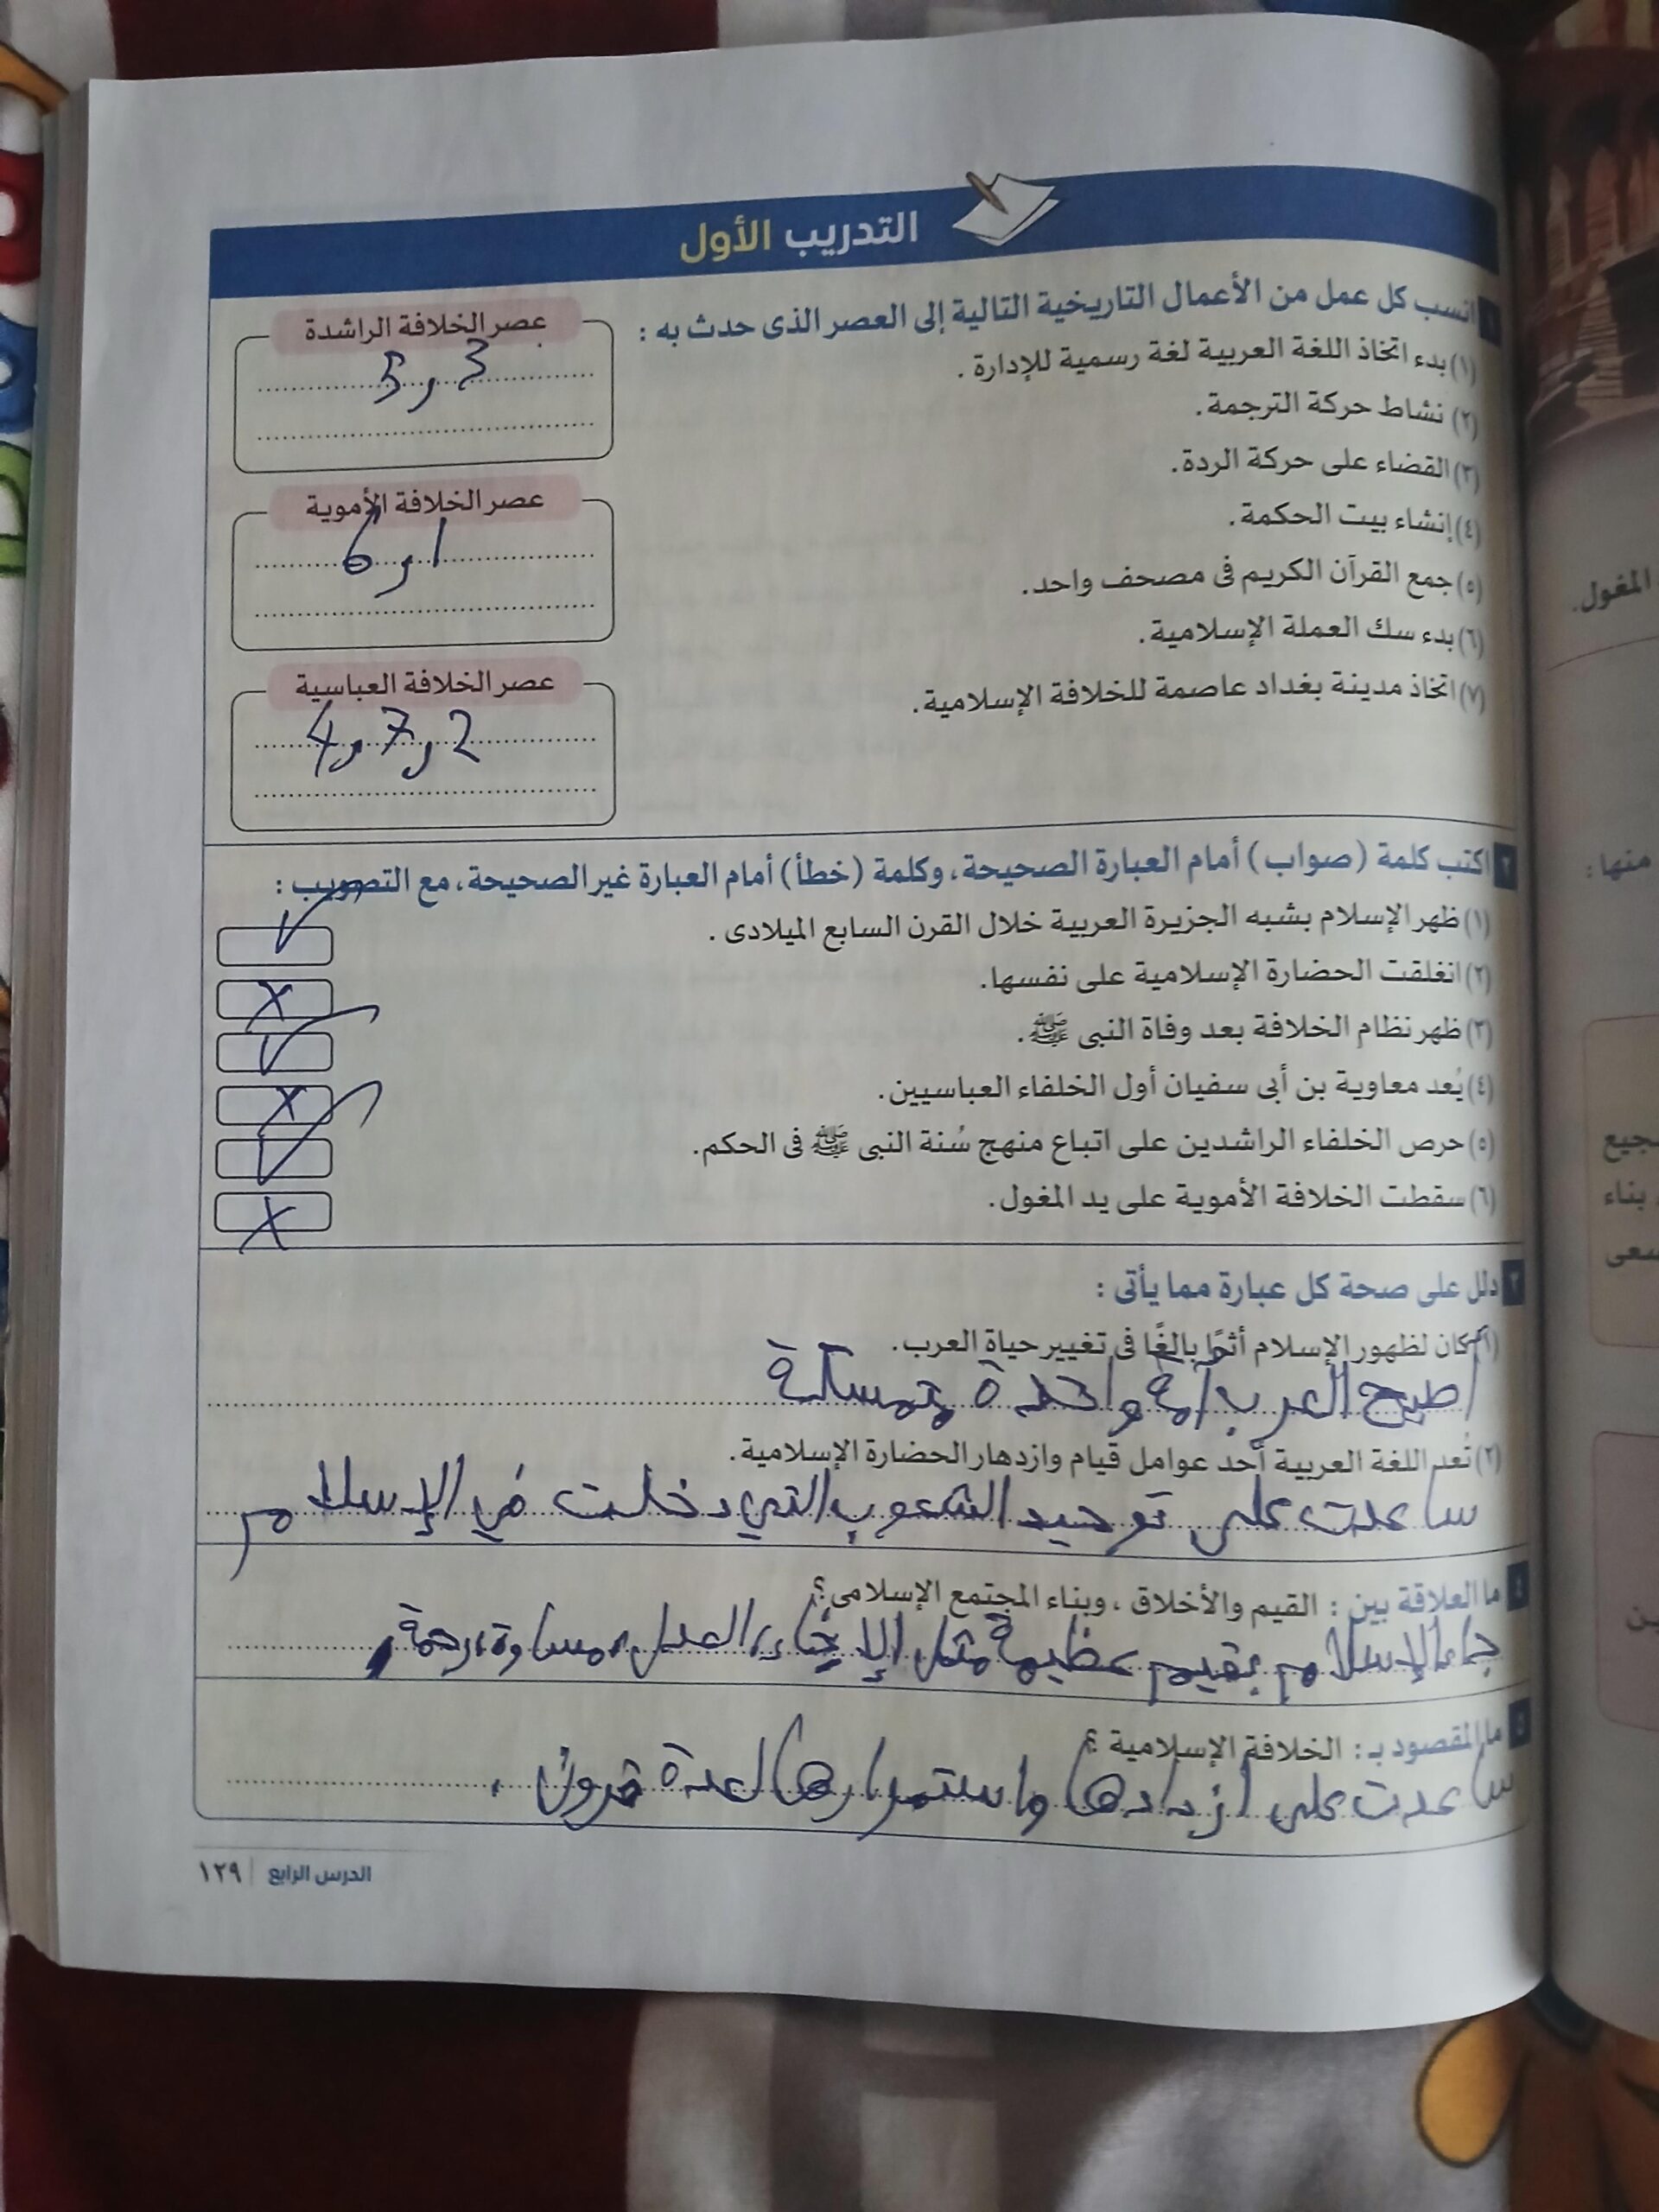 التدريب الأول
١ انسب كل عمل من الأعمال التاريخية التالية إلى العصر الذى حدث به :
(١) بدء اتخاذ اللغة العربية لغة رسمية للإدارة .
(٢) نشاط حركة الترجمة.
(٣) القضاء على حركة الردة.
(٤) إنشاء بيت الحكمة.
(٥) جمع القرآن الكريم فى مصحف واحد.
(٦) بدء سك العملة الإسلامية.
(٧) اتخاذ مدينة بغداد عاصمة للخلافة الإسلامية.
عصر الخلافة الراشدة
3 , 5
عصر الخلافة الأموية
1 , 6
عصر الخلافة العباسية
2 , 7 , 4
٢ اكتب كلمة (صواب) أمام العبارة الصحيحة، وكلمة (خطأ) أمام العبارة غير الصحيحة، مع التصويب :
(١) ظهر الإسلام بشبه الجزيرة العربية خلال القرن السابع الميلادى . ✓
(٢) انغلقت الحضارة الإسلامية على نفسها. X
(٣) ظهر نظام الخلافة بعد وفاة النبى ﷺ. ✓
(٤) يُعد معاوية بن أبى سفيان أول الخلفاء العباسيين. X
(٥) حرص الخلفاء الراشدين على اتباع منهج سُنة النبى ﷺ فى الحكم. ✓
(٦) سقطت الخلافة الأموية على يد المغول. X
٣ دلل على صحة كل عبارة مما يأتى :
(١) كان لظهور الإسلام أثرًا بالغًا فى تغيير حياة العرب.
أصبح العرب أمة واحدة
(٢) تُعد اللغة العربية أحد عوامل قيام وازدهار الحضارة الإسلامية.
ساعدت على توحيد الشعوب التي دخلت في الإسلام
٤ ما العلاقة بين : القيم والأخلاق ، وبناء المجتمع الإسلامى؟
جاء الإسلام بقيم عظيمة مثل الإخاء، العدل، مساوة، رحمة,
٥ ما المقصود بـ : الخلافة الإسلامية ؟
ساعدت على واستمرارها لعدة قرون .
الدرس الرابع | ١٢٩
المغول.
منها :
بناء